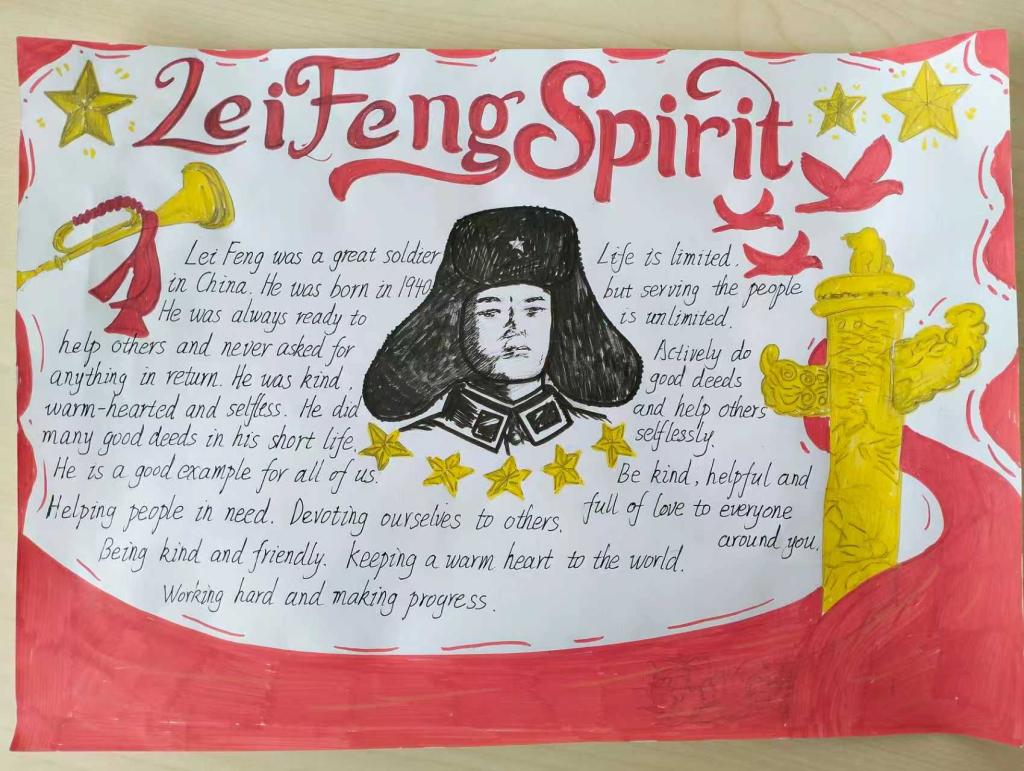 Lei Feng Spirit
Lei Feng was a great soldier
in China. He was born in 1940
He was always ready to
help others and never asked for
anything in return. He was kind,
warm-hearted and selfless. He did
many good deeds in his short life,
He is a good example for all of us.
Life is limited,
but serving the people
is unlimited.
Actively do
good deeds
and help others
selflessly.
Be kind, helpful and
full of love to everyone
around you.
Helping people in need. Devoting ourselves to others.
Being kind and friendly. Keeping a warm heart to the world.
Working hard and making progress.